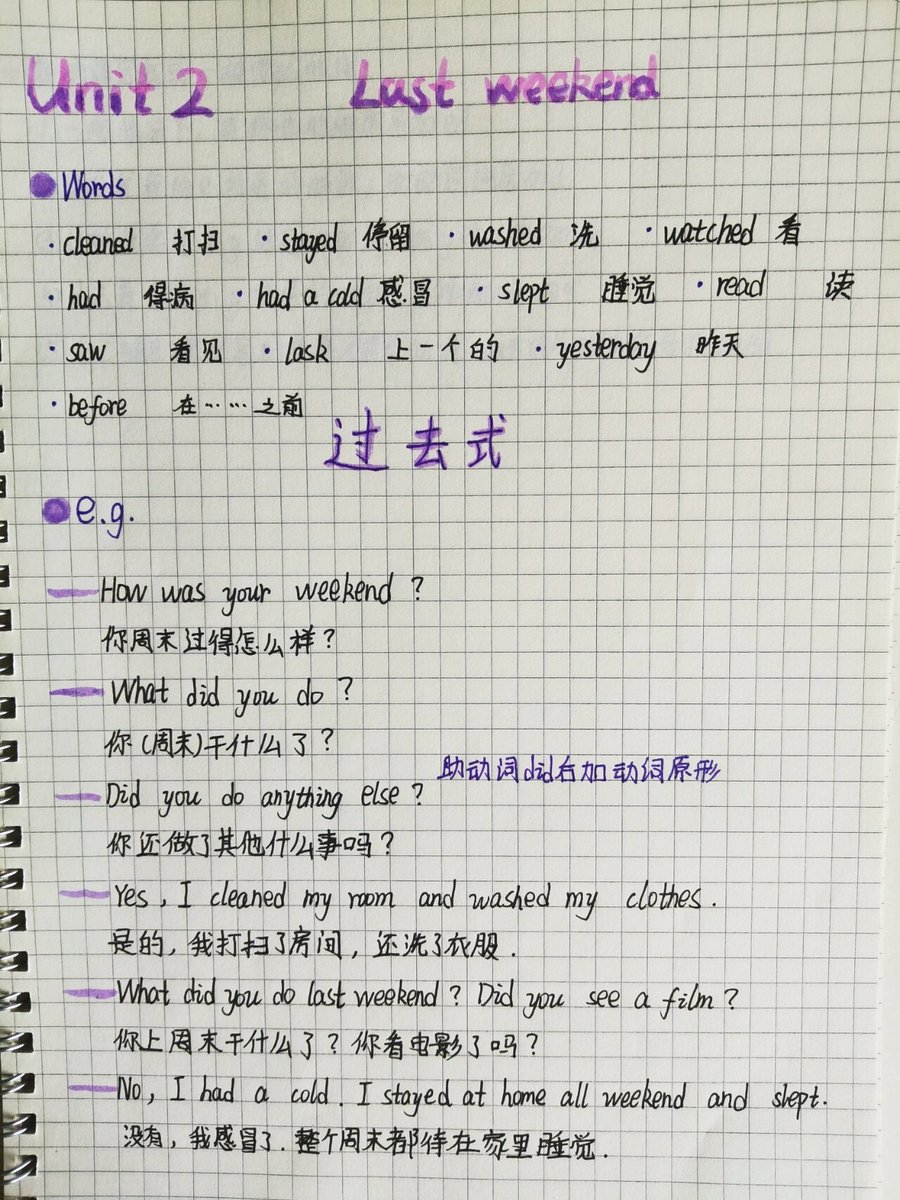 Unit 2 Last weekend
Words
· cleaned 打扫 · stayed 停留 · washed 洗 · watched 看
· had 得病 · had a cold 感冒 · slept 睡觉 · read 读
· saw 看见 · lask 上一个的 · yesterday 昨天
· before 在……之前
过去式
e.g.
— How was your weekend ?
你周末过得怎么样?
— What did you do ?
你(周末)干什么了?
助动词did后加动词原形
— Did you do anything else ?
你还做了其他什么事吗?
— Yes, I cleaned my room and washed my clothes.
是的,我打扫了房间,还洗了衣服.
— What did you do last weekend ? Did you see a film ?
你上周末干什么了?你看电影了吗?
— No, I had a cold. I stayed at home all weekend and slept.
没有,我感冒了.整个周末都待在家里睡觉.